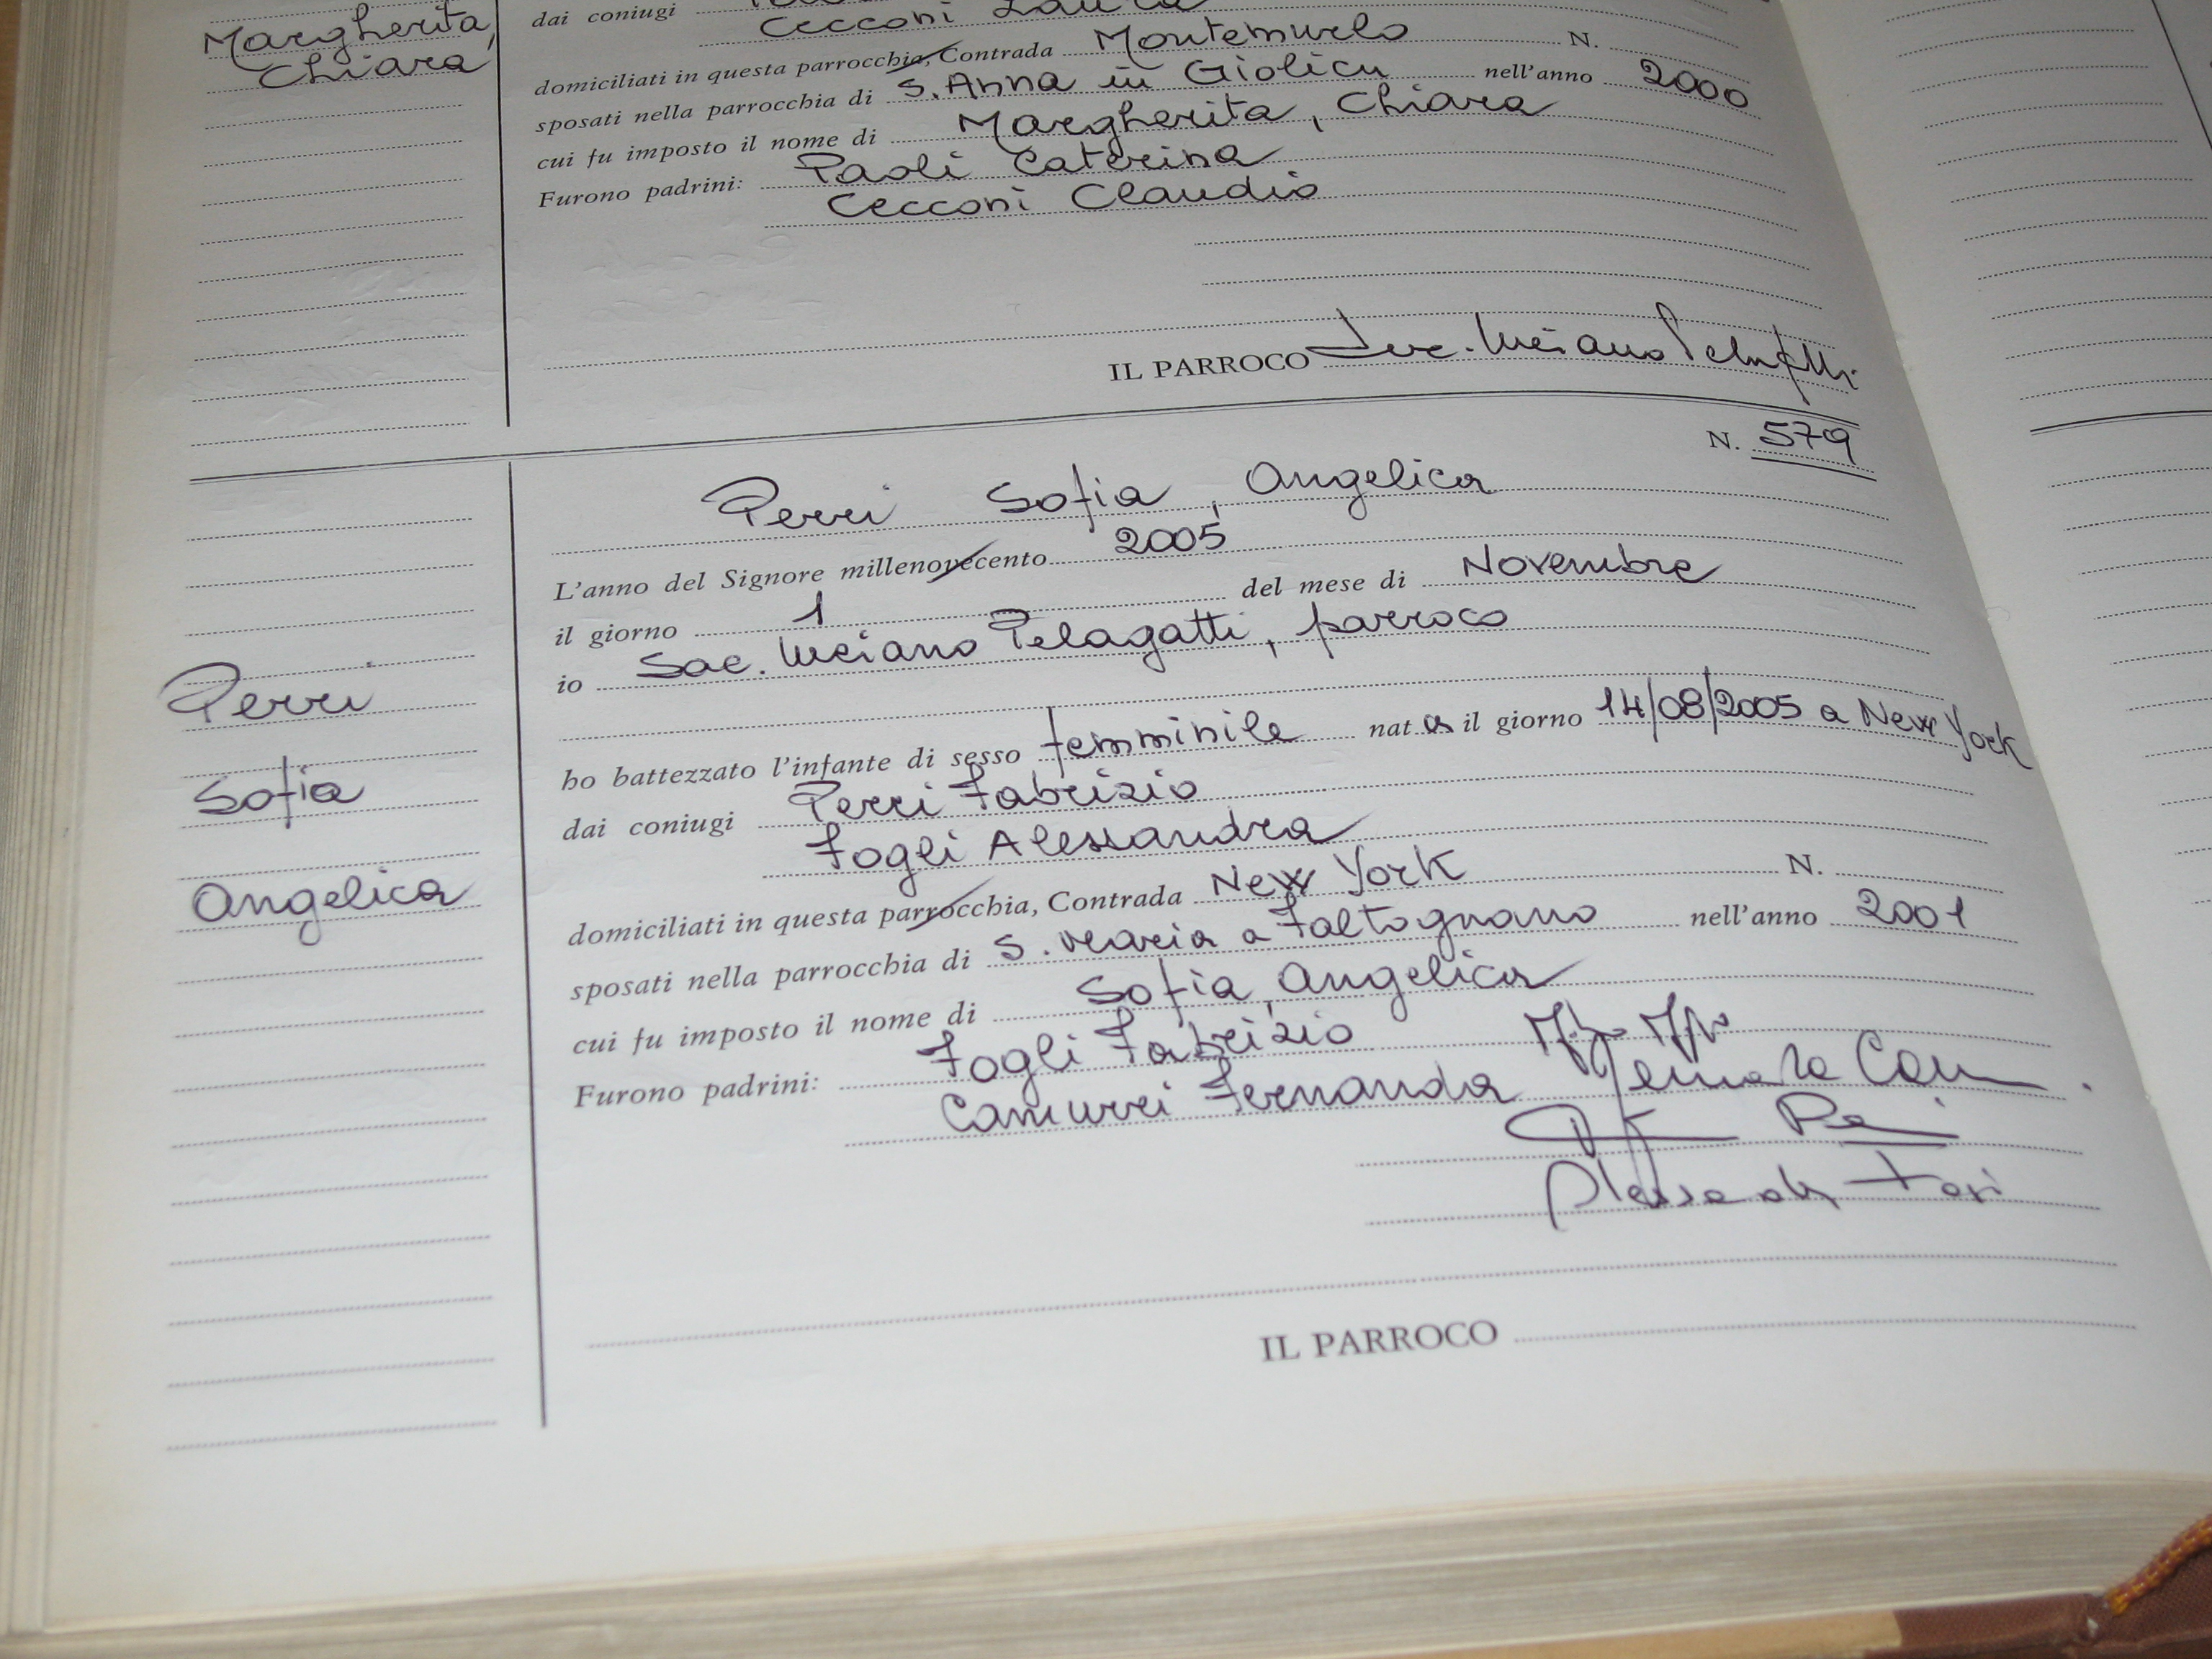 Margherita,
Chiara
dai coniugi
Cecconi Laura
domiciliati in questa parrocchia, Contrada Montemurlo N.
sposati nella parrocchia di S. Anna in Giolica nell'anno 2000
cui fu imposto il nome di Margherita, Chiara
Furono padrini: Paoli Caterina
Cecconi Claudio
IL PARROCO Luciano Pelagatti
N. 579
Perri Sofia, Angelica
L'anno del Signore millenovecento 2005
il giorno 1 del mese di Novembre
io Sac. Luciano Pelagatti, parroco
ho battezzato l'infante di sesso femminile nata il giorno 14/08/2005 a New York
dai coniugi Perri Fabrizio
Fogli Alessandra
domiciliati in questa parrocchia, Contrada New York N.
sposati nella parrocchia di S. Maria a Faltognano nell'anno 2001
cui fu imposto il nome di Sofia, Angelica
Furono padrini: Fogli Fabrizio
Camurri Fernanda
IL PARROCO
Perri
Sofia
Angelica